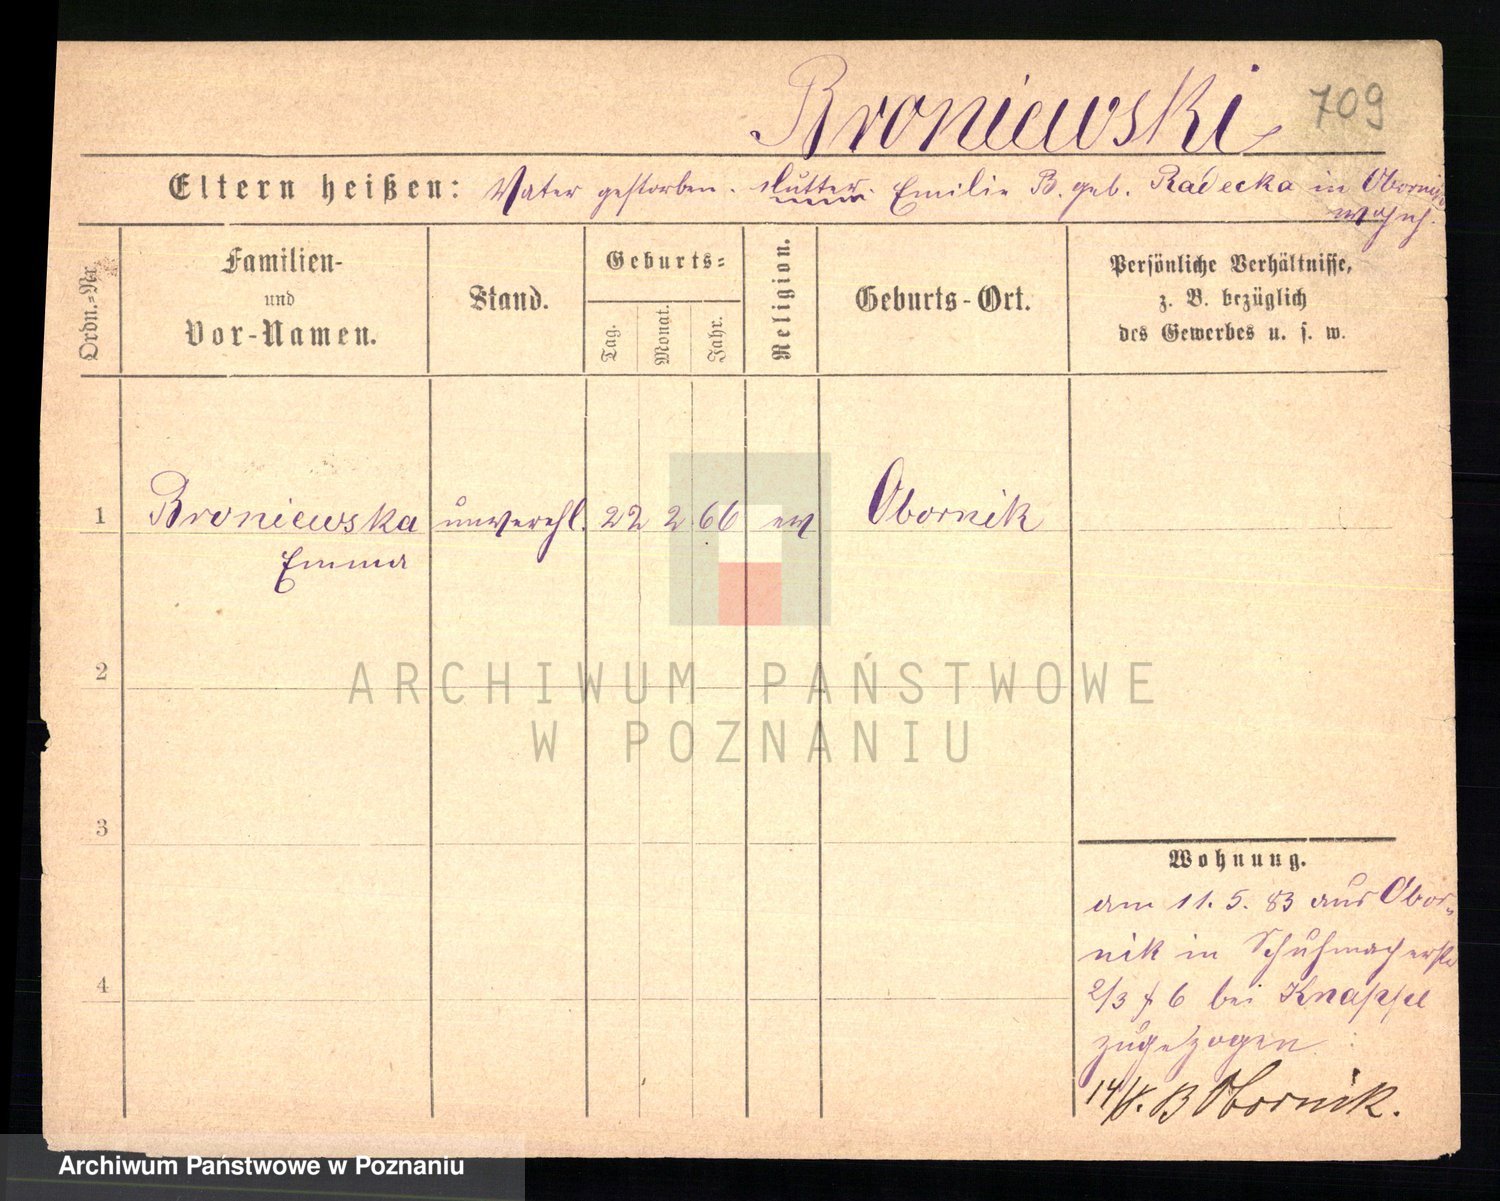 Broniewski
709
Eltern heißen: Vater gestorben. Mutter: Emilie B. geb. Radecka in Obornik
wohnh.
Ordn.-Nr.
Familien-
und
Vor-Namen.
Stand.
Geburts-
Tag.
Monat.
Jahr.
Religion.
Geburts-Ort.
Persönliche Verhältnisse,
z. B. bezüglich
des Gewerbes u. s. w.
1 Broniewska unverehl. 22 2 66 ev Obornik
Emma
2
3
4
Wohnung.
am 11. 5. 83 aus Obor-
nik in Schuhmacherstr
2/3 6 bei Knappe
zugezogen
14/ B Obornik.
ARCHIWUM PAŃSTWOWE
W POZNANIU
Archiwum Państwowe w Poznaniu